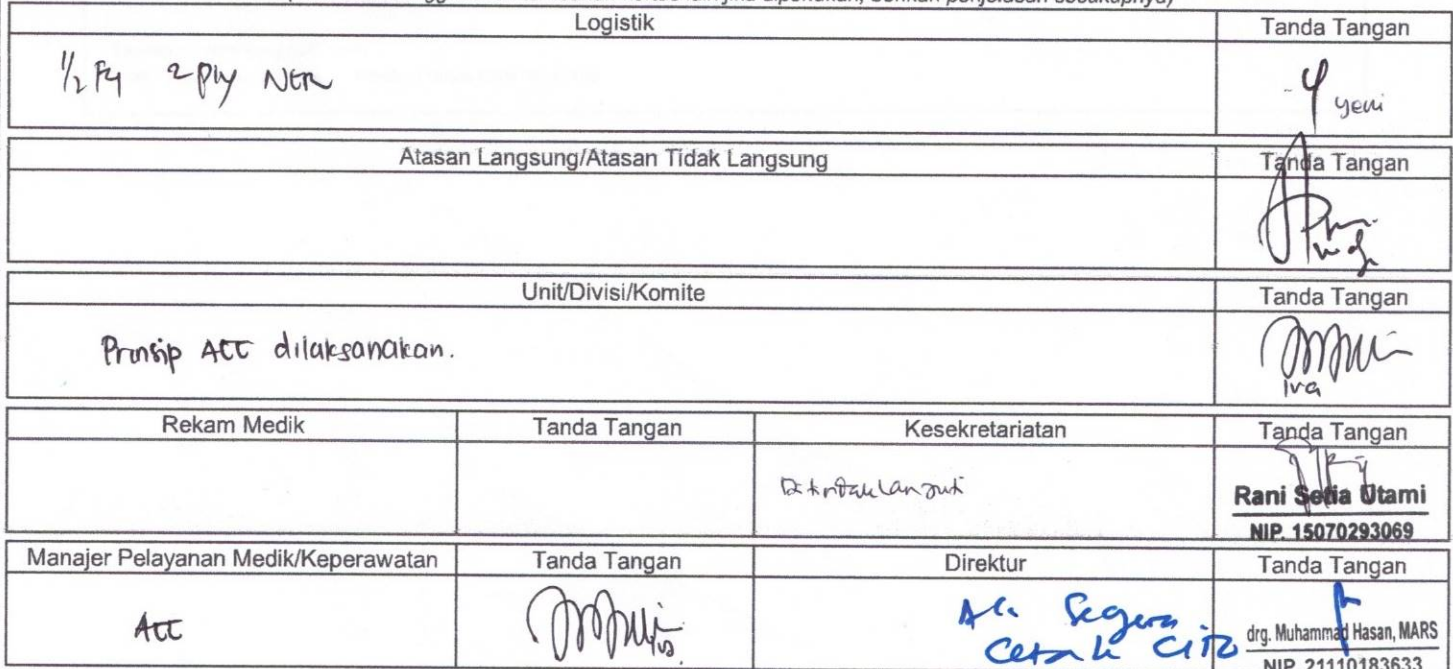 Logistik Tanda Tangan
1/2 F4 2 Ply NCR
yeni
Atasan Langsung/Atasan Tidak Langsung Tanda Tangan
Unit/Divisi/Komite Tanda Tangan
Prinsip ACC dilaksanakan.
Iva
Rekam Medik Tanda Tangan Kesekretariatan Tanda Tangan
Ditindaklanjuti
Rani Setia Utami
NIP. 15070293069
Manajer Pelayanan Medik/Keperawatan Tanda Tangan Direktur Tanda Tangan
ACC
Acc Segera
Cetak CITO
drg. Muhammad Hasan, MARS
NIP. 21110183633